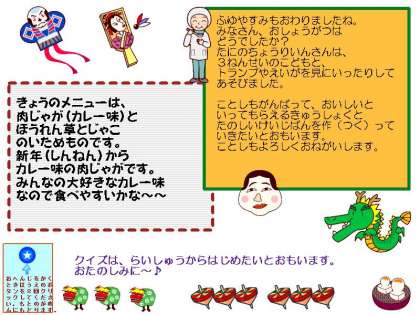 ふゆやすみもおわりましたね。
みなさん、おしょうがつは
どうでしたか？
たにのちょうりいんさんは、
３ねんせいのこどもと、
トランプやえいがを見にいったりして
あそびました。
ことしもがんばって、おいしいと
いってもらえるきゅうしょくと
たのしいけいじばんを作（つく）って
いきたいとおもいます。
ことしもよろしくおねがいします。
きょうのメニューは、
肉じゃが（カレー味）と
ほうれん草とじゃこ
のいためものです。
新年（しんねん）から
カレー味の肉じゃがです。
みんなの大好きなカレー味
なので食べやすいかな～～
クイズは、らいしゅうからはじめたいとおもいます。
おたのしみに～♪